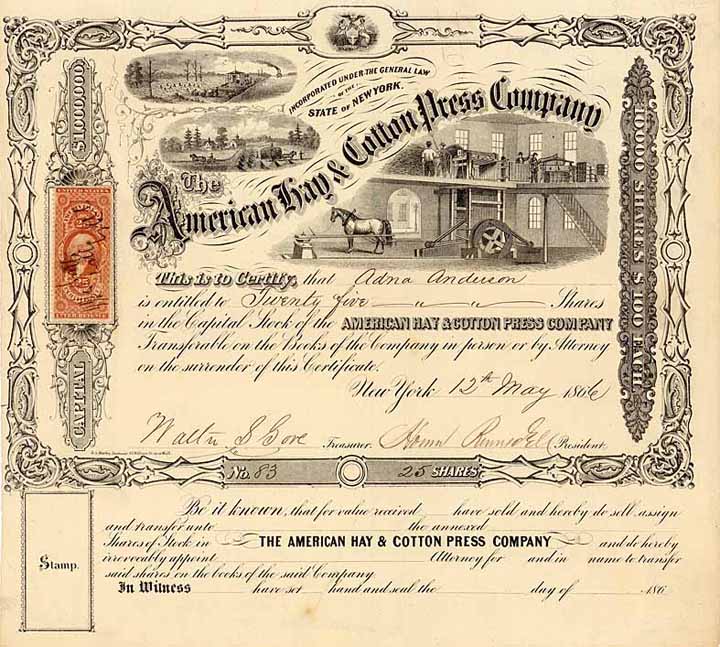 INCORPORATED UNDER THE GENERAL LAW
OF THE
STATE OF NEW YORK.
The
American Hay & Cotton Press Company
$1,000,000
CAPITAL
10,000 SHARES $100 EACH
UNITED STATES
25
25
INTER. REVENUE
This is to Certify, that Adna Anderson
is entitled to Twenty five " " Shares
in the Capital Stock of the AMERICAN HAY & COTTON PRESS COMPANY
Transferable on the Books of the Company in person or by Attorney
on the surrender of this Certificate.
New York 12th May 1866
Walter S Gove Treasurer. President.
No. 83 25 SHARES
Be it known, that for value received have sold and hereby do sell, assign
and transfer unto the annexed
Shares of Stock in THE AMERICAN HAY & COTTON PRESS COMPANY and do hereby
irrevocably appoint Attorney for and in name to transfer
said shares on the books of the said Company
In Witness have set hand and seal the day of 186
Stamp.